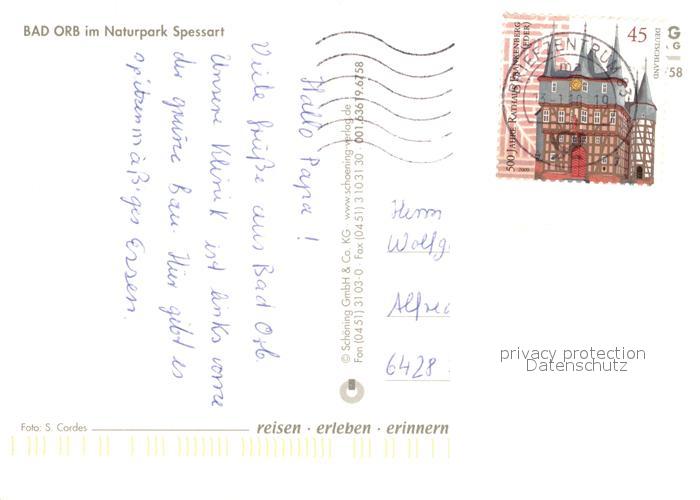 BAD ORB im Naturpark Spessart
Hallo Papa!
Viele Grüße aus Bad Orb.
Unsere Klinik ist links vorne
der grüne Bau. Hier gibt es
spitzenmäßiges Essen.
© Schöning GmbH & Co. KG · www.schoening-verlag.de
Fon (04 51) 3103-0 · Fax (04 51) 3 10 31 30 · 001.63619.6758
Herrn
Wolfg
Alfred
6428
500 JAHRE RATHAUS FRANKENBERG
(EDER)
45
DEUTSCHLAND
2009
BRIEFZENTRUM 63
G
G
58
privacy protection
Datenschutz
Foto: S. Cordes
reisen · erleben · erinnern